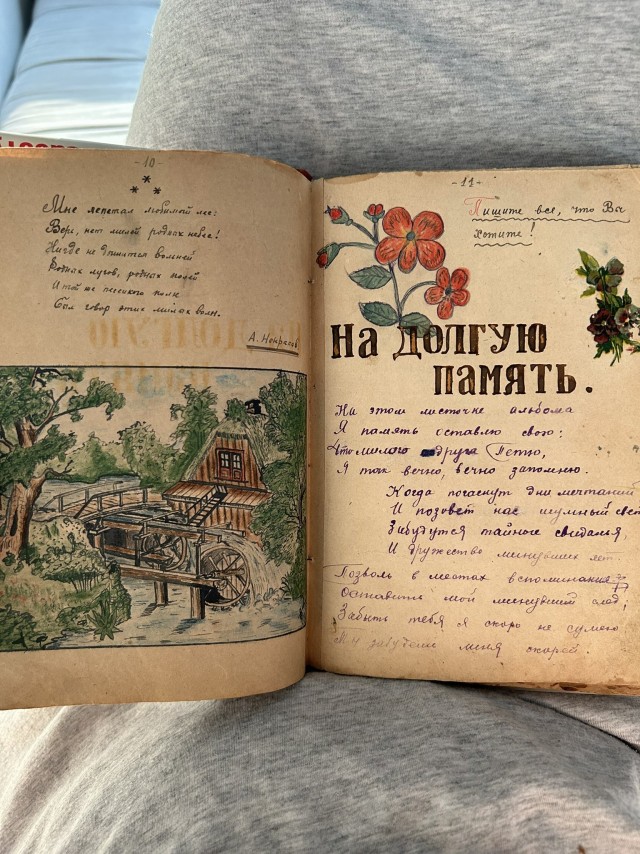 - 10 -
* * *
Мне лепетал любимый лес:
Верь, нет милей родных небес!
Нигде не дышится вольней
Родных лугов, родных полей
И той же песенкою полн
Был говор этих милых волн.
А. Некрасов
- 11 -
Пишите все, что Вы
хотите!
НА ДОЛГУЮ
ПАМЯТЬ.
На этом листочке альбома
Я память оставлю свою:
Что милого друга Петю,
Я так вечно, вечно запомню.
Когда погаснут дни мечтаний
И позовет нас шумный свет
Забудутся тайные свиданья,
И дружество минувших лет.
Позволь в листах вспоминания
Оставить мой минувший след;
Забыть тебя я скоро не сумею
Ты забудешь меня скорей.